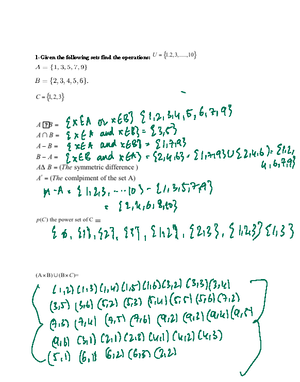 1-Given the following sets find the operations: U = {1,2,3,.....,10}
A = {1, 3, 5, 7, 9}
B = {2, 3, 4, 5, 6}.
C = {1,2,3}
A ? B = {x∈A or x∈B} {1,2,3,4,5,6,7,9}
A ∩ B = {x∈A and x∈B} = {3,5}
A − B = {x∈A and x∉B} = {1,7,9}
B − A = {x∈B and x∉A} = {2,4,6}
A∆ B = (The symmetric difference ) = {1,7,9} ∪ {2,4,6} = {1,2,4,6,7,9}
A' = (The compliment of the set A)
M-A = {1,2,3, ... 10} - {1,3,5,7,9}
= {2,4,6,8,10}
p(C) the power set of C =
{ ∅, {1}, {2}, {3}, {1,2}, {2,3}, {1,2,3} {1,3}
(A×B) ∪ (B×C)=
(1,2) (1,3) (1,4) (1,5) (1,6) (3,2) (3,3) (3,4)
(3,5) (3,6) (5,2) (5,3) (5,4) (5,5) (5,6) (7,2)
(7,3) (7,4) (7,5) (7,6) (9,2) (9,3) (9,4) (9,5)
(9,6) (3,1) (2,1) (2,3) (4,1) (4,2) (4,3)
(5,1) (6,1) (6,2) (6,3) (2,2)